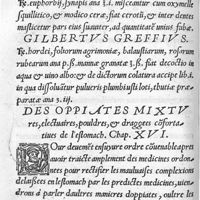 ℞. euphorbij, synapis ana ʒ.j. misceantur cum oxymelle
squillitico, & modico ceræ fiat cerotũ, & inter dentes
masticetur pars eius suauiter, ad quantitatẽ vnius fabæ.
GILBERTVS GREFFIVS.
℞. hordei, foliorum agrimoniæ, balaustiorum, rosarum
rubearum ana p. m. mannæ granatæ ʒ.ß. fiat decoctio in
aqua & vino albo: & de dictorum colatura accipe lib. ß.
in qua dissoluantur pulueris plumbi lusti loti, thutiæ præ-
paratæ ana ʒ. ij.
DES OPPIATES MIXTV
res, electuaires, pouldres, & dragges cõforta-
tiues de l'estomach. Chap. XVI.
Our deuement ensuyure ordre cõuenable apres
auoir traicté amplement des medicines ordon-
nées pour rectifier les mauluaises complexions
delaissées en l'estomach par les predictes medicines, vien-
drons à parler daultres manieres doppiates, oultre les